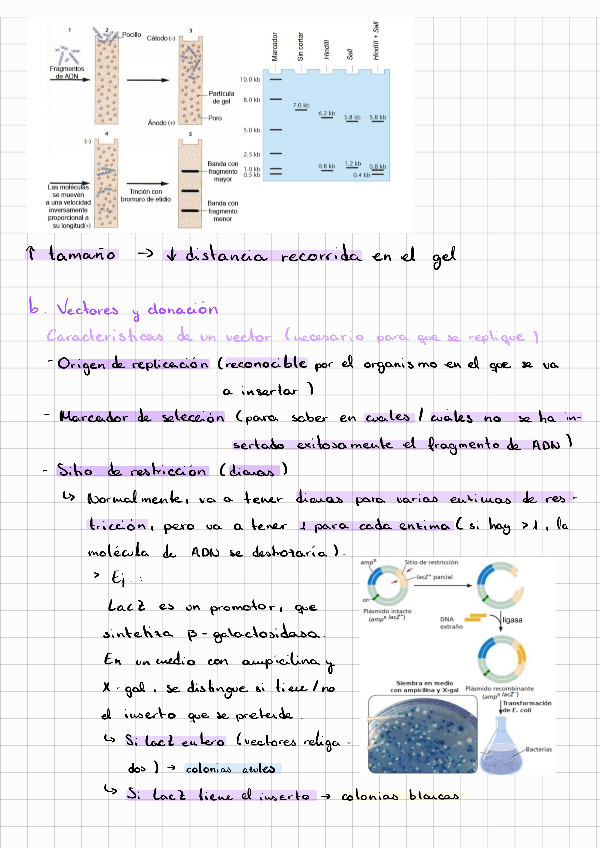 1
2
Pocillo
3
Cátodo (-)
Fragmentos
de ADN
Partícula
de gel
Poro
Ánodo (+)
4
(-)
5
Las moléculas
se mueven
a una velocidad
inversamente
proporcional a
su longitud
(+)
Tinción con
bromuro de etidio
Banda con
fragmento
mayor
Banda con
fragmento
menor
Marcador
Sin cortar
HindIII
SalI
HindIII + SalI
10.0 kb
8.0 kb
7.0 kb
6.2 kb
5.8 kb
5.8 kb
5.0 kb
2.5 kb
1.0 kb
0.5 kb
0.8 kb
1.2 kb
0.8 kb
0.4 kb
↑ tamaño → ↓ distancia recorrida en el gel
b. Vectores y clonación
Características de un vector (necesario para que se replique)
- Origen de replicación (reconocible por el organismo en el que se va
a insertar)
- Marcador de selección (para saber en cuáles / cuáles no se ha in-
sertado exitosamente el fragmento de ADN)
- Sitio de restricción (dianas)
↳ Normalmente, va a tener dianas para varias enzimas de res-
tricción, pero va a tener 1 para cada enzima (si hay >1, la
molécula de ADN se destrozaría).
> Ej.:
LacZ es un promotor, que
sintetiza β-galactosidasa.
En un medio con ampicilina y
X-gal, se distingue si tiene/no
el inserto que se pretende.
↳ Si lacZ entero (vectores religa-
dos) → colonias azules
↳ Si LacZ tiene el inserto → colonias blancas
ampᴿ
Sitio de restricción
lacZ⁺ parcial
ori
Plásmido intacto
(ampᴿ lacZ⁺)
DNA
extraño
ligasa
Siembra en medio
con ampicilina y X-gal
Plásmido recombinante
(ampᴿ lacZ⁻)
Transformación
de E. coli
Bacterias